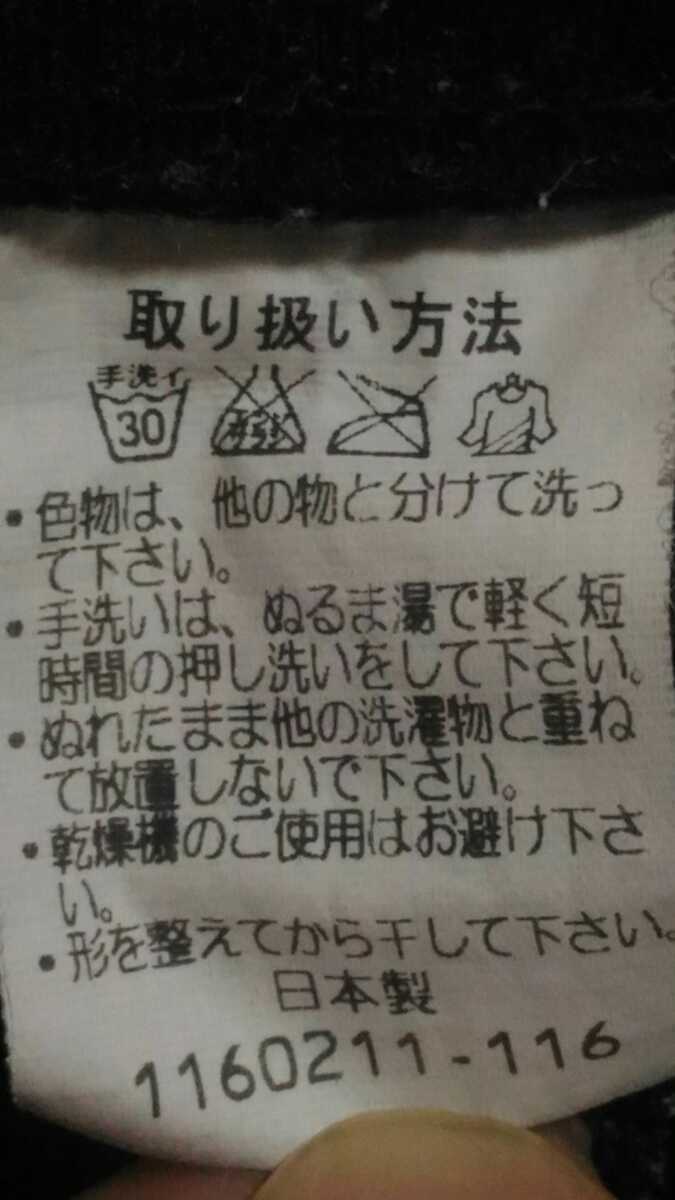 取り扱い方法
手洗イ
30
・色物は、他の物と分けて洗っ
て下さい。
・手洗いは、ぬるま湯で軽く短
時間の押し洗いをして下さい。
・ぬれたまま他の洗濯物と重ね
て放置しないで下さい。
・乾燥機のご使用はお避け下さ
い。
・形を整えてから干して下さい。
日本製
1160211-116